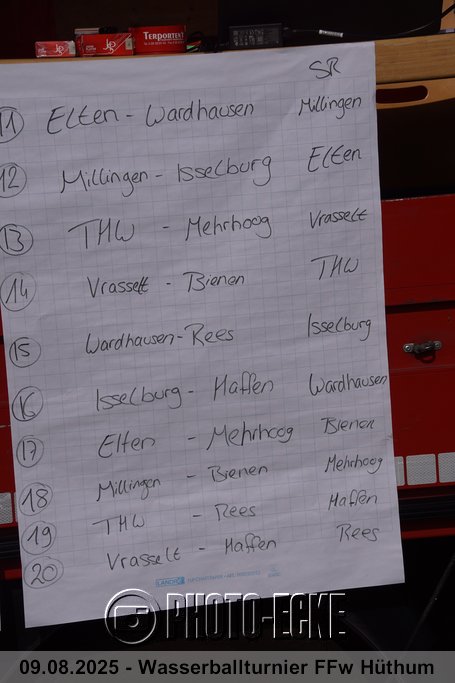 TERPORTEN
SR
11 Elten - Wardhausen Millingen
12 Millingen - Isselburg Elten
13 THW - Mehrhoog Vrasselt
14 Vrasselt - Bienen THW
15 Wardhausen - Rees Isselburg
16 Isselburg - Haffen Wardhausen
17 Elten - Mehrhoog Bienen
18 Millingen - Bienen Mehrhoog
19 THW - Rees Haffen
20 Vrasselt - Haffen Rees
LANDRÉ
PHOTO-ECKE
09.08.2025 - Wasserballturnier FFw Hüthum